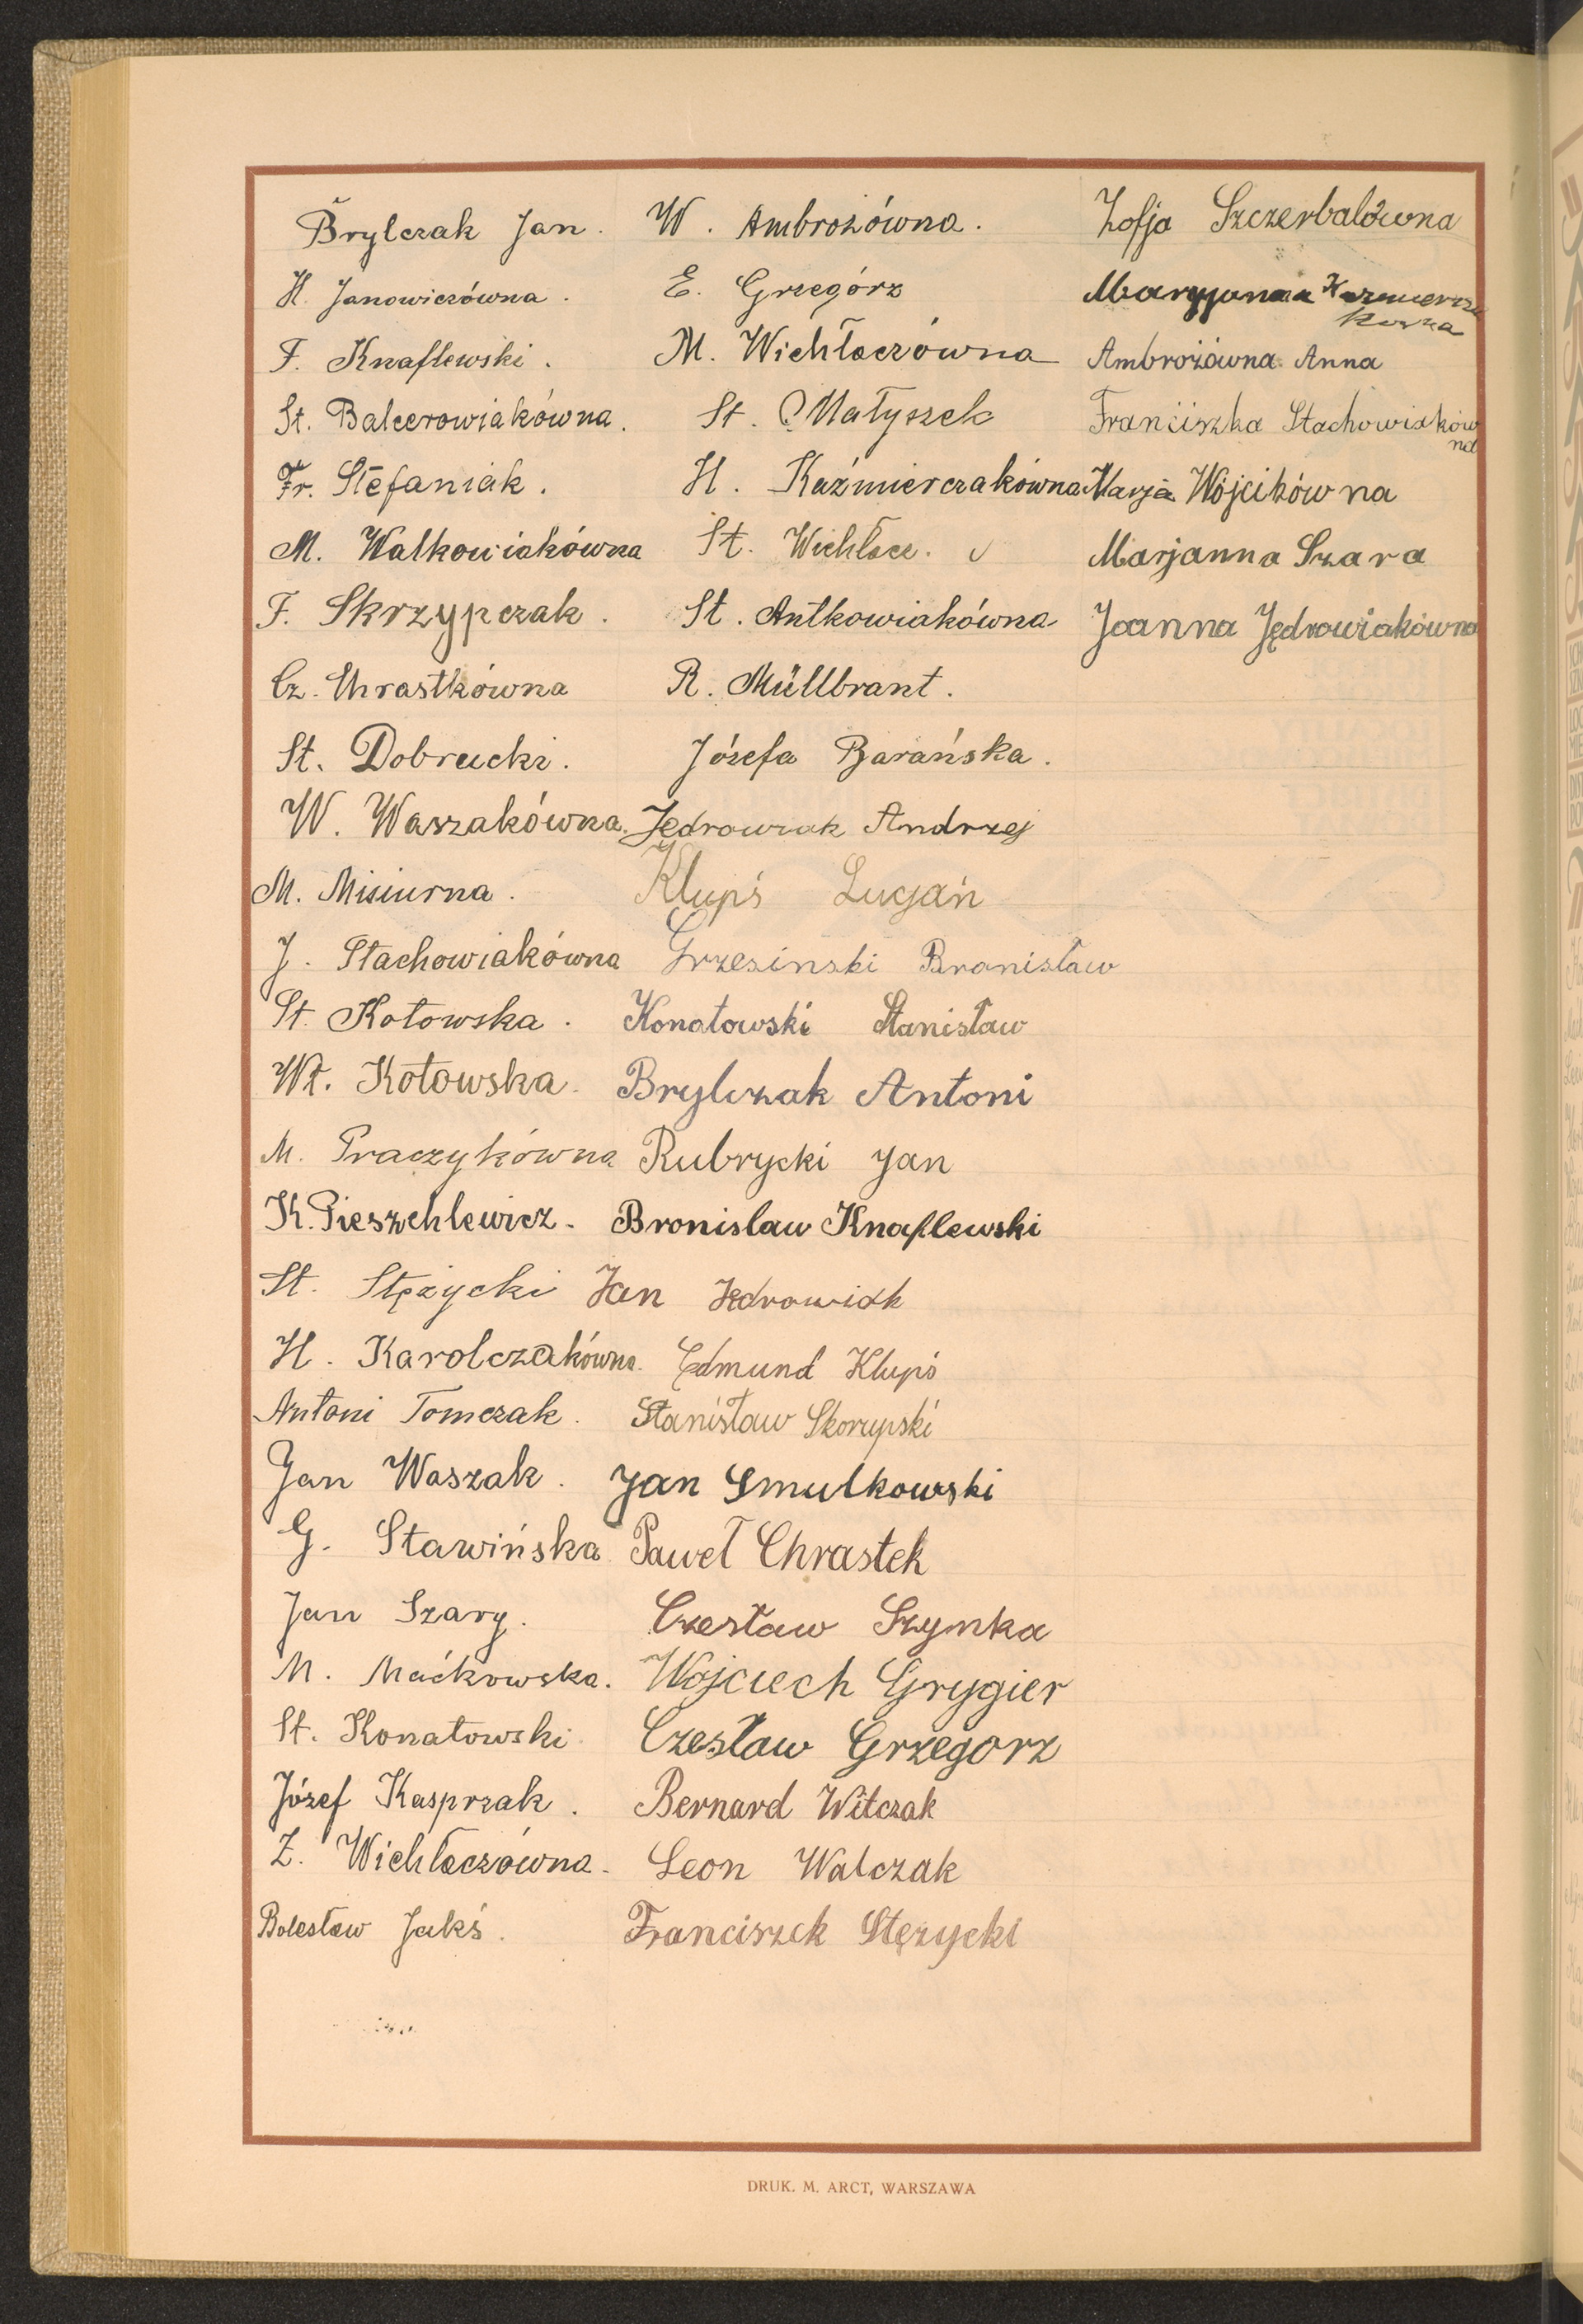 Brylczak Jan.
H. Janowiczówna.
F. Knaflewski.
St. Balcerowiakówna.
Fr. Stefaniak.
M. Walkowiakówna
F. Skrzypczak.
Cz. Chrastkówna
St. Dobrucki.
W. Waszakówna.
M. Misiurna.
J. Stachowiakówna
St. Kotowska.
Wł. Kotowska.
M. Praczykówna
K. Pieszchlewicz.
St. Stężycki
H. Karolczakówna.
Antoni Tomczak.
Jan Waszak.
G. Stawińska
Jan Szary.
M. Maćkowska.
St. Konatowski
Józef Kasprzak.
Z. Wichłaczówna.
Bolesław Jakś.
W. Ambrożówna.
E. Grzegórz
M. Wichłaczówna
St. Małyszek
H. Kaźmierczakówna
St. Wichłacz.
St. Antkowiakówna
R. Müllbrant.
Józefa Barańska.
Jędrowiak Andrzej
Klupś Lucjan
Grzesinski Bronisław
Konatowski Stanisław
Brylczak Antoni
Rubrycki Jan
Bronislaw Knaflewski
Jan Jędrowiak
Edmund Klupś
Stanisław Skorupski
Jan Smulkowski
Paweł Chrastek
Czesław Szymka
Wojciech Grygier
Czesław Grzegorz
Bernard Witczak
Leon Walczak
Franciszek Stężycki
Zofja Szczerbalówna
Maryjanna
Ambrożówna Anna
Franciszka Stachowiaków
na
Marja Wójcikówna
Marjanna Szara
Joanna Jędrowiakówna
DRUK. M. ARCT, WARSZAWA